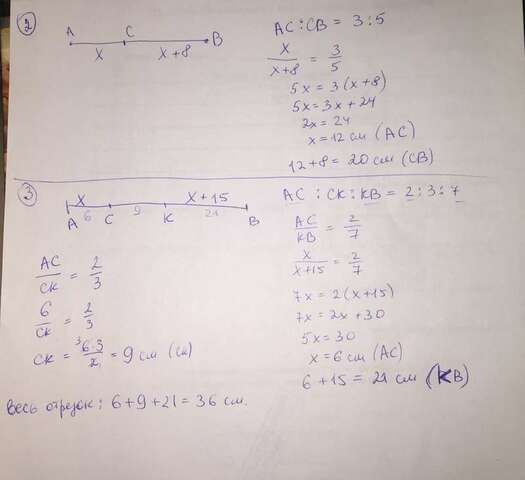 2
A C B
x x+8
AC:CB = 3:5
x/(x+8) = 3/5
5x = 3(x+8)
5x = 3x+24
2x = 24
x = 12 см (AC)
12+8 = 20 см (CB)
3
x x+15
6 9 21
A C K B
AC : CK : KB = 2:3:7
AC/KB = 2/7
x/(x+15) = 2/7
7x = 2(x+15)
7x = 2x+30
5x = 30
x = 6 см (AC)
6+15 = 21 см (KB)
AC/CK = 2/3
6/CK = 2/3
CK = 6·3/2 = 9 см (CK)
Весь отрезок: 6+9+21 = 36 см.